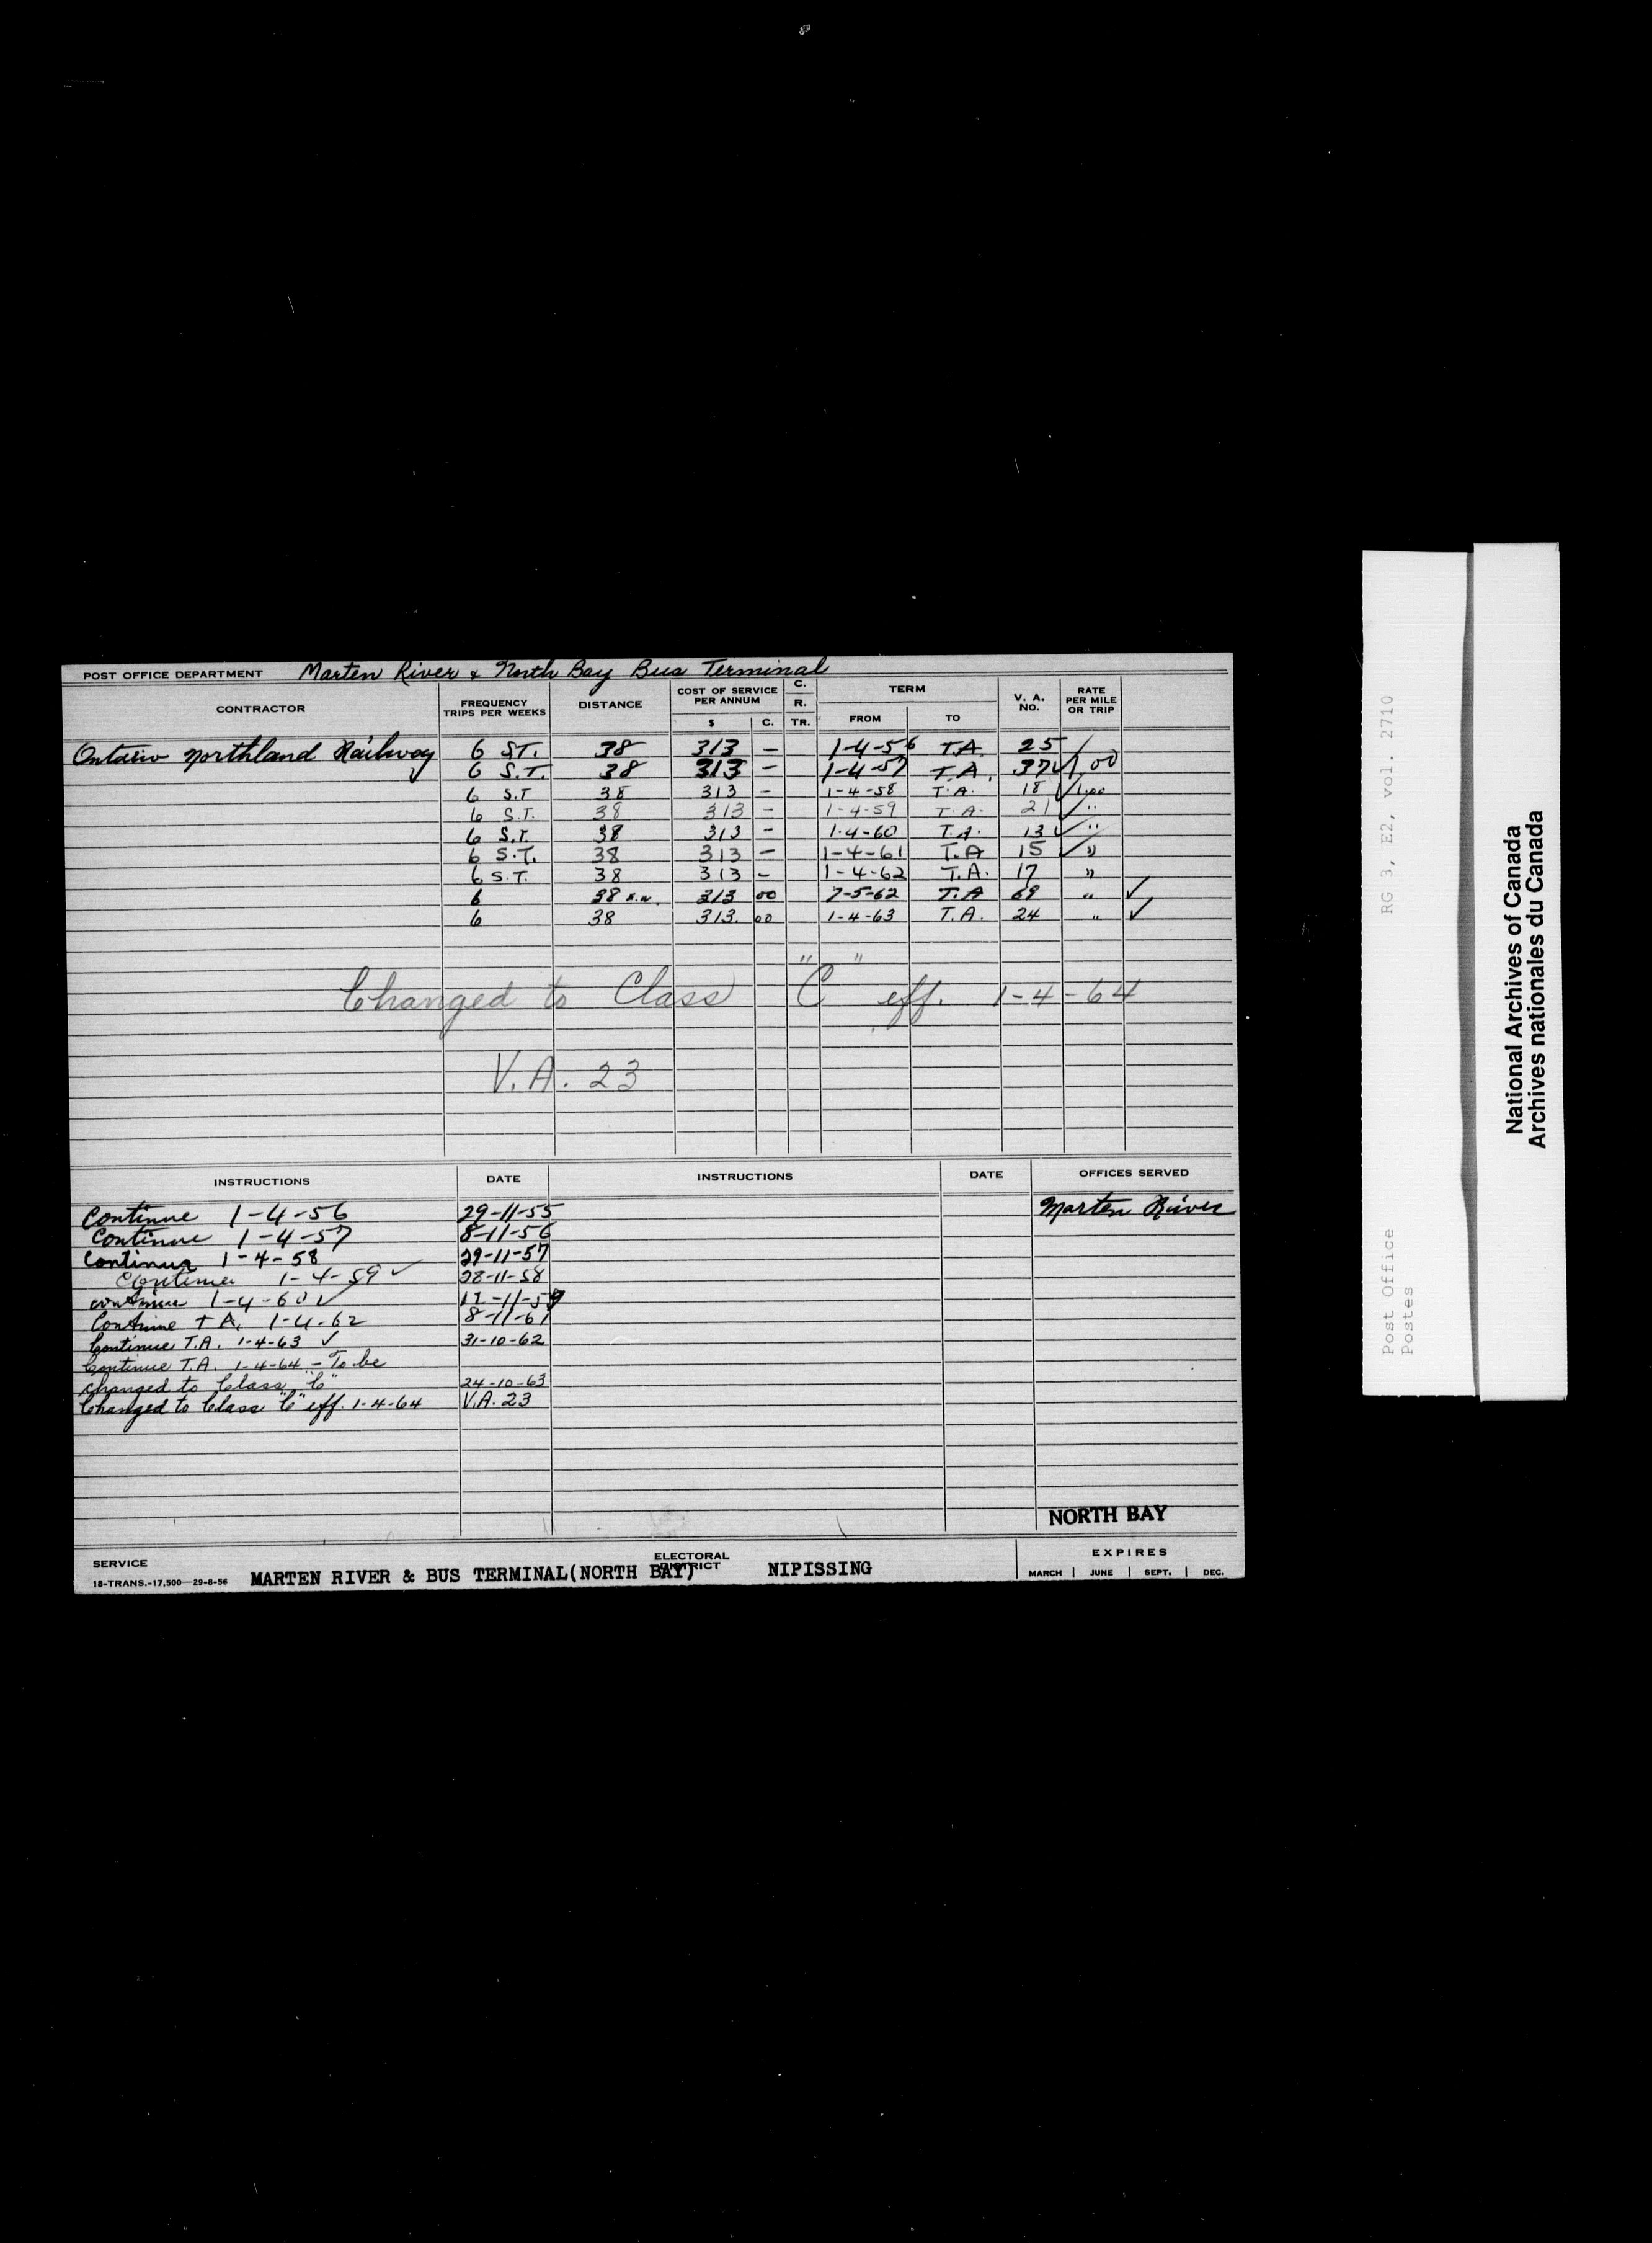 POST OFFICE DEPARTMENT Marten River & North Bay Bus Terminal
CONTRACTOR FREQUENCY TRIPS PER WEEKS DISTANCE COST OF SERVICE PER ANNUM $ C. C. R. TR. TERM FROM TO V. A. NO. RATE PER MILE OR TRIP
Ontario Northland Railway 6 S.T. 38 313 – 1-4-56 T.A. 25
6 S.T. 38 313 – 1-4-57 T.A. 37 ✓ 1.00
6 S.T 38 313 – 1-4-58 T.A. 18 ✓ 1.00
6 S.T. 38 313 – 1-4-59 T.A. 21 ✓ "
6 S.T. 38 313 – 1-4-60 T.A. 13 ✓ "
6 S.T. 38 313 – 1-4-61 T.A 15 ✓ "
6 S.T. 38 313 – 1-4-62 T.A. 17 "
6 38 313 00 7-5-62 T.A 69 " ✓
6 38 313. 00 1-4-63 T.A. 24 " ✓
Changed to Class "C" eff. 1-4-64
V.A. 23
INSTRUCTIONS DATE INSTRUCTIONS DATE OFFICES SERVED
Continue 1-4-56 29-11-55 Marten River
Continue 1-4-57 8-11-56
Continue 1-4-58 29-11-57
Continue 1-4-59 ✓ 28-11-58
continue 1-4-60 ✓ 12-11-59
Continue T A. 1-4-62 8-11-61
Continue T.A. 1-4-63 ✓ 31-10-62
Continue T.A. 1-4-64 - To be
changed to Class "C" 24-10-63
Changed to Class "C" eff. 1-4-64 V.A. 23
NORTH BAY
SERVICE ELECTORAL DISTRICT EXPIRES
18-TRANS.-17,500—29-8-56 MARTEN RIVER & BUS TERMINAL(NORTH BAY) NIPISSING MARCH | JUNE | SEPT. | DEC.
RG 3, E2, vol. 2710
Post Office
Postes
National Archives of Canada
Archives nationales du Canada